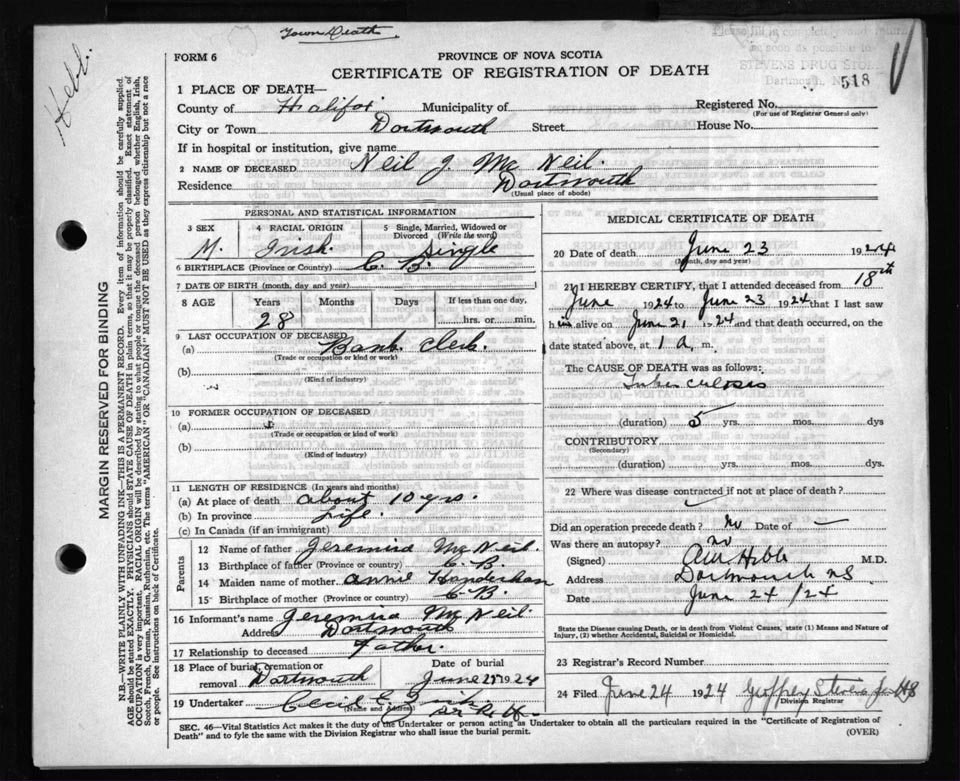 Town Death.
Please fill in completely and return
as soon as possible to
STEVENS DRUG STORE
Dartmouth, N.
518
FORM 6
PROVINCE OF NOVA SCOTIA
CERTIFICATE OF REGISTRATION OF DEATH
1 PLACE OF DEATH—
County of Halifax Municipality of Registered No.
(For use of Registrar General only)
City or Town Dartmouth Street House No.
If in hospital or institution, give name
2 NAME OF DECEASED Neil J. Mc Neil.
Residence Dartmouth
(Usual place of abode)
PERSONAL AND STATISTICAL INFORMATION
3 SEX 4 RACIAL ORIGIN 5 Single, Married, Widowed or Divorced (Write the word)
M. Irish. Single
6 BIRTHPLACE (Province or Country) C. B.
7 DATE OF BIRTH (month, day and year)
8 AGE Years Months Days If less than one day,
28 hrs. or min.
9 LAST OCCUPATION OF DECEASED
(a) Bank Clerk.
(Trade or occupation or kind or work)
(b)
(Kind of industry)
10 FORMER OCCUPATION OF DECEASED
(a)
(Trade or occupation or kind of work)
(b)
(Kind of industry)
11 LENGTH OF RESIDENCE (In years and months)
(a) At place of death about 10 yrs.
(b) In province Life.
(c) In Canada (if an immigrant)
Parents
12 Name of father Jeremira Mc Neil.
13 Birthplace of father (Province or Country) C. B.
14 Maiden name of mother Annie Handerhan
15 Birthplace of mother (Province or country) C. B.
16 Informant's name Jeremira Mc Neil
Address Dartmouth
17 Relationship to deceased Father.
18 Place of burial, cremation or removal Dartmouth Date of burial June 25 1924
19 Undertaker Cecil E.
(Name and Address)
MEDICAL CERTIFICATE OF DEATH
20 Date of death June 23 1924
(Month, day and year)
21 I HEREBY CERTIFY, that I attended deceased from 18th
June 1924 to June 23 1924 that I last saw
him alive on June 21 1924 and that death occurred, on the
date stated above, at 1 a, m.
The CAUSE OF DEATH was as follows:
Tuberculosis
(duration) 5 yrs. mos. dys
CONTRIBUTORY
(Secondary)
(duration) yrs. mos. dys.
22 Where was disease contracted if not at place of death?
Did an operation precede death? no Date of —
Was there an autopsy? no
(Signed) M.D.
Address Dartmouth NS
Date June 24 / 24
State the Disease causing Death, or in death from Violent Causes, state (1) Means and Nature of Injury, (2) whether Accidental, Suicidal or Homicidal.
23 Registrar's Record Number
24 Filed June 24 1924 Geoffrey Stevens
Division Registrar
SEC. 46—Vital Statistics Act makes it the duty of the Undertaker or person acting as Undertaker to obtain all the particulars required in the "Certificate of Registration of
Death" and to fyle the same with the Division Registrar who shall issue the burial permit.
(OVER)
MARGIN RESERVED FOR BINDING
N.B.—WRITE PLAINLY WITH UNFADING INK—THIS IS A PERMANENT RECORD. Every item of information should be carefully supplied.
AGE should be stated EXACTLY. PHYSICIANS should STATE CAUSE OF DEATH in plain terms, so that it may be properly classified. Exact statement of
OCCUPATION is very important. RACIAL ORIGIN will be described by stating to what people or tongue the deceased person belonged whether English, Irish,
Scotch, French, German, Russian, Ruthenian, etc. The terms "AMERICAN" OR "CANADIAN" MUST NOT BE USED as they express citizenship but not a race
or people. See instructions on back of Certificate.